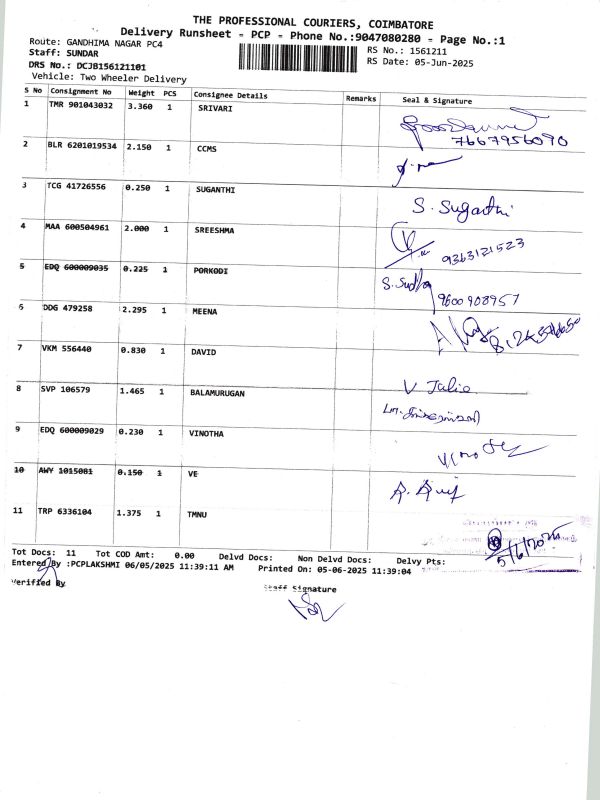 THE PROFESSIONAL COURIERS, COIMBATORE
Delivery Runsheet - PCP - Phone No.:9047080280 - Page No.:1
Route: GANDHIMA NAGAR PC4
RS No.: 1561211
Staff: SUNDAR
RS Date: 05-Jun-2025
DRS No.: DCJB156121101
Vehicle: Two Wheeler Delivery
S No Consignment No Weight PCS Consignee Details Remarks Seal & Signature
1 TMR 901043032 3.360 1 SRIVARI
7667956090
2 BLR 6201019534 2.150 1 CCMS
3 TCG 41726556 0.250 1 SUGANTHI S. Suganthi
4 MAA 600504961 2.000 1 SREESHMA
9363121523
5 EDQ 600009035 0.225 1 PORKODI S. Sudha
9600908957
6 DDG 479258 2.295 1 MEENA
7 VKM 556440 0.830 1 DAVID V Julie
8 SVP 106579 1.465 1 BALAMURUGAN
9 EDQ 600009029 0.230 1 VINOTHA
10 AWY 1015081 0.150 1 VE
11 TRP 6336104 1.375 1 TMNU
5/6/2025
Tot Docs: 11 Tot COD Amt: 0.00 Delvd Docs: Non Delvd Docs: Delvy Pts:
Entered By :PCPLAKSHMI 06/05/2025 11:39:11 AM Printed On: 05-06-2025 11:39:04
Verified By Staff Signature